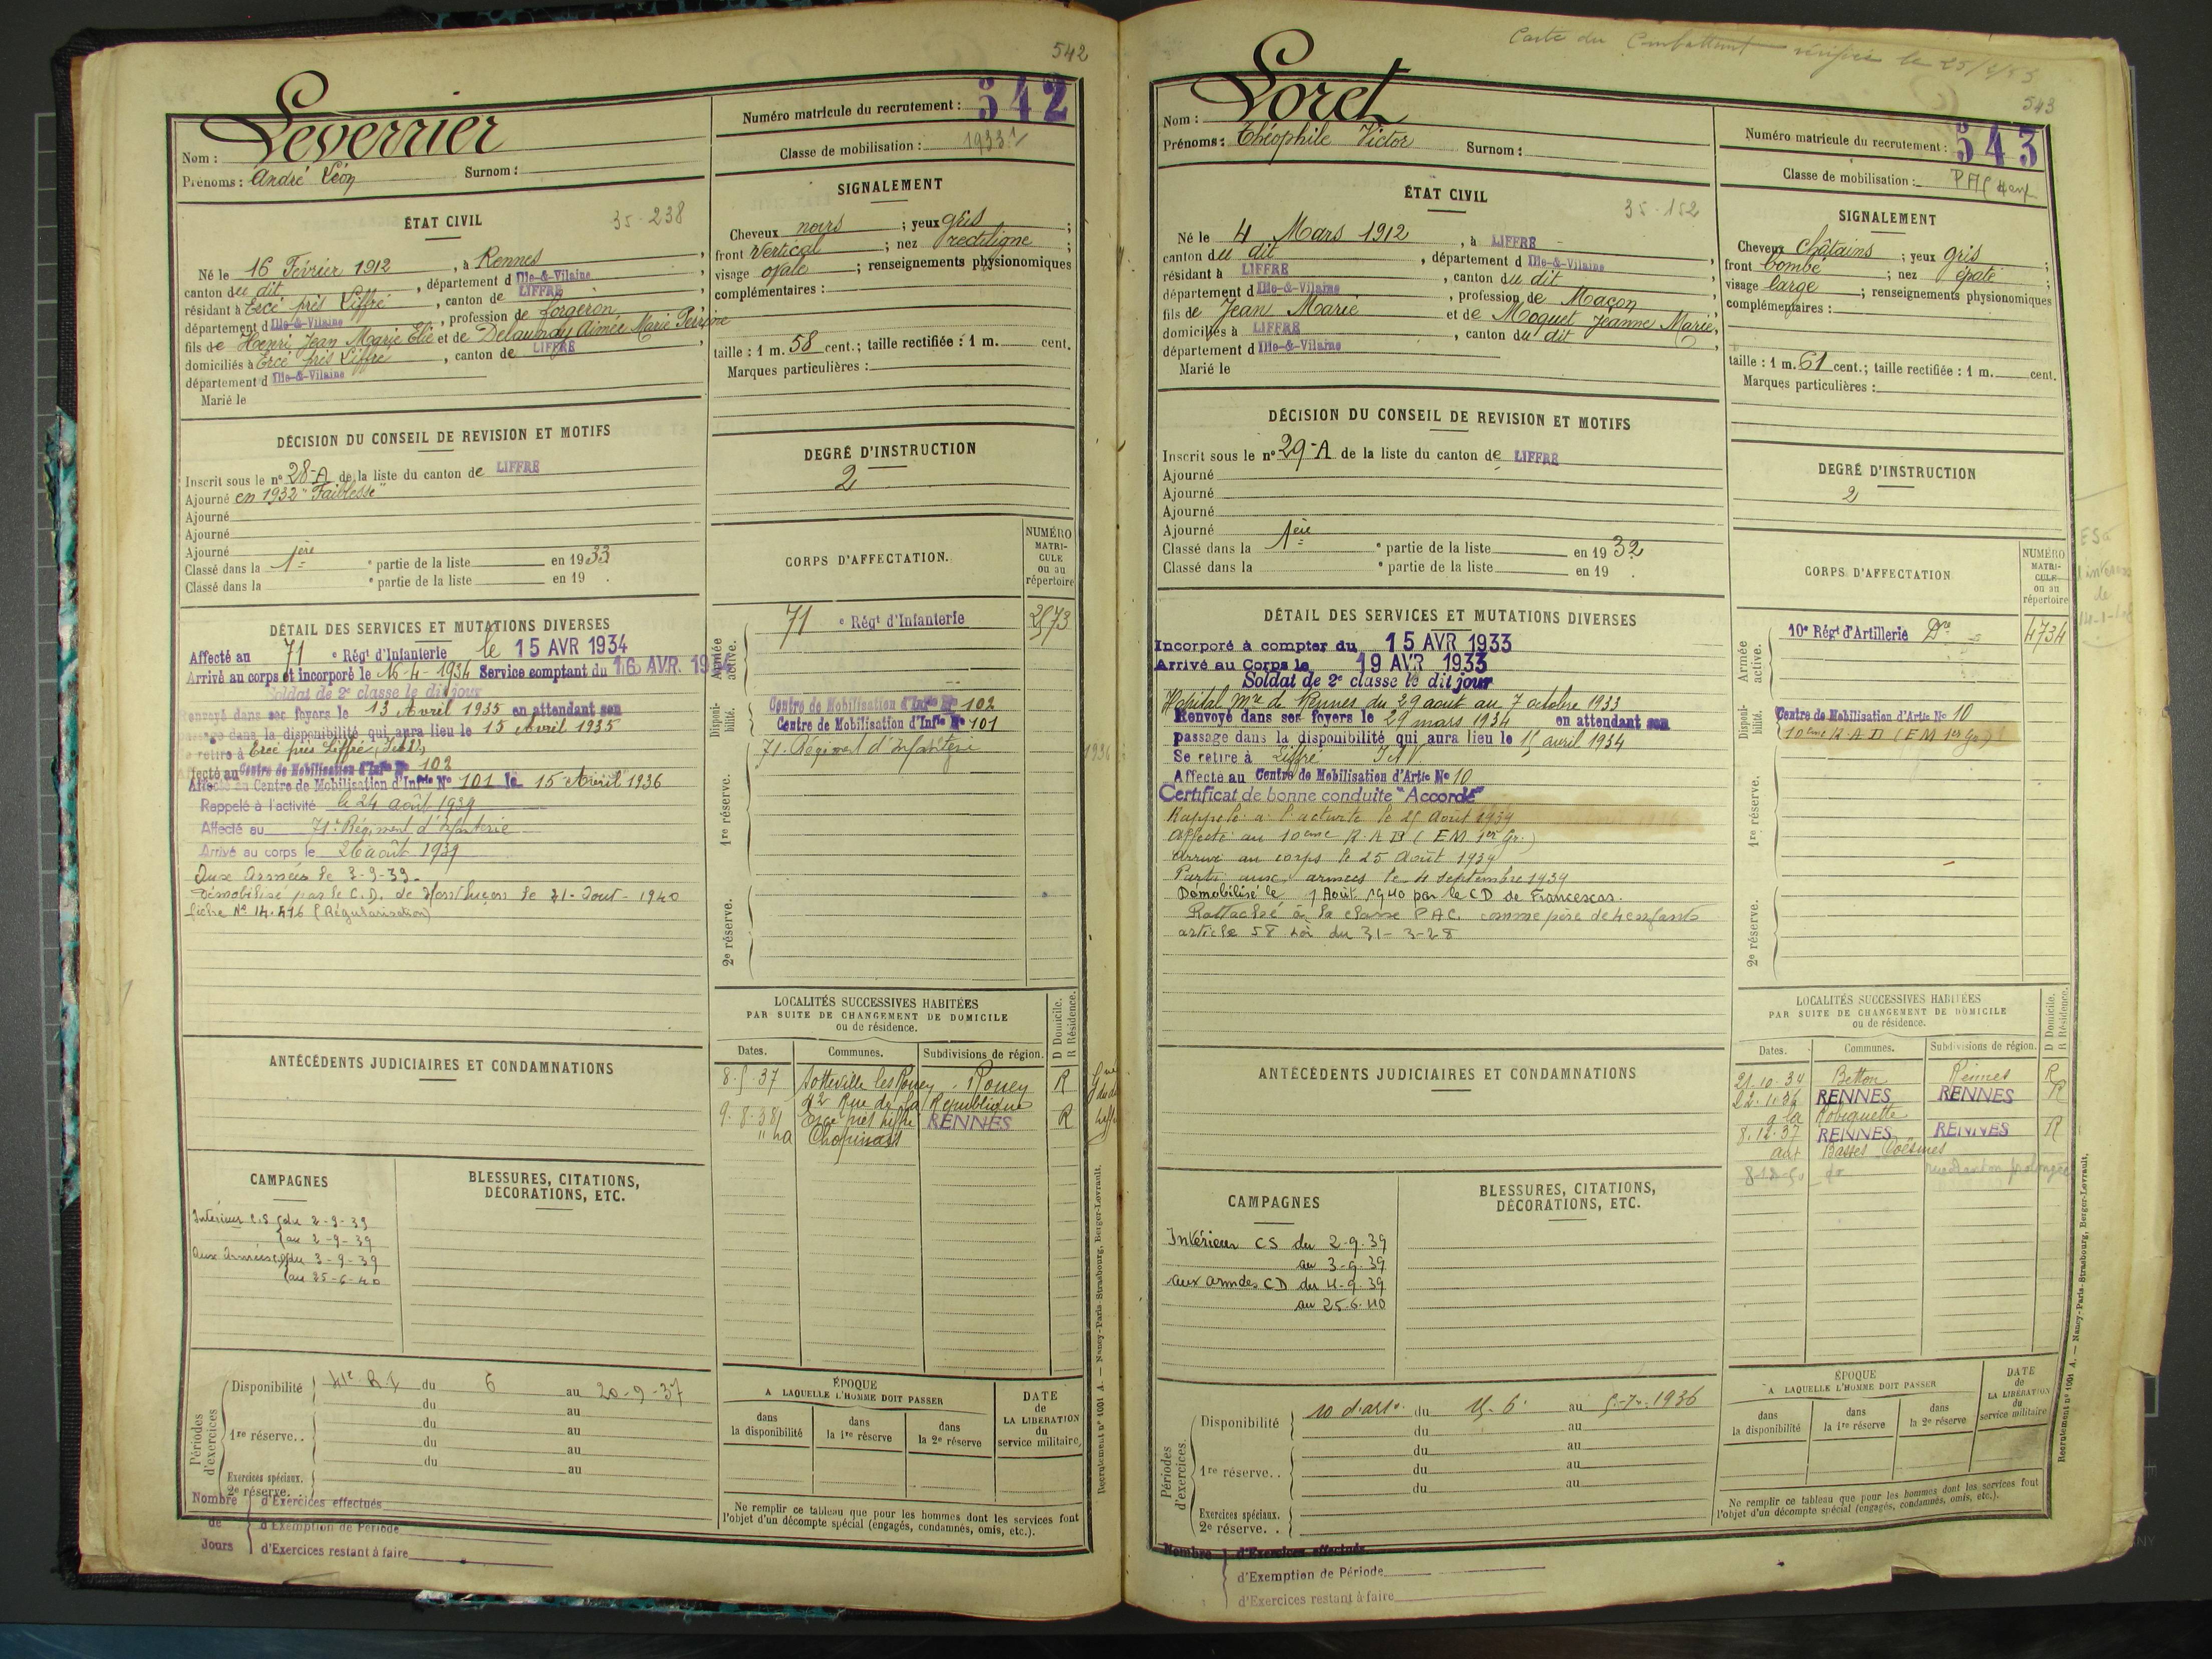 542
Nom : Leverrier
Prénoms : André Léon Surnom :
Numéro matricule du recrutement : 542
Classe de mobilisation : 1933
ÉTAT CIVIL
35-238
Né le 16 Février 1912, à Rennes,
canton du dit, département d Ille-&-Vilaine,
résidant à Ercé près Liffré, canton de LIFFRÉ,
département d Ille-&-Vilaine, profession de forgeron,
fils de Henri Jean Marie Elie et de Delaunay Aimée Marie Perrine
domiciliés à Ercé près Liffré, canton de LIFFRÉ,
département d Ille-&-Vilaine
Marié le
SIGNALEMENT
Cheveux noirs ; yeux gris ;
front Vertical ; nez rectiligne ;
visage ovale ; renseignements physionomiques
complémentaires :
taille : 1 m. 58 cent.; taille rectifiée : 1 m. cent.
Marques particulières :
DÉCISION DU CONSEIL DE REVISION ET MOTIFS
Inscrit sous le nº 28-A de la liste du canton de LIFFRÉ
Ajourné en 1932 "Faiblesse"
Ajourné
Ajourné
Ajourné
Classé dans la 1ère e partie de la liste en 1933
Classé dans la e partie de la liste en 19 .
DEGRÉ D'INSTRUCTION
2
DÉTAIL DES SERVICES ET MUTATIONS DIVERSES
Affecté au 71 e Régt d'Infanterie le 15 AVR 1934
Arrivé au corps et incorporé le 16-4-1934 Service comptant du 16 AVR. 19
Soldat de 2e classe le dit jour
Renvoyé dans ses foyers le 13 Avril 1935 en attendant son
passage dans la disponibilité qui aura lieu le 15 Avril 1935
Se retire à Ercé près Liffré, I et V,
Affecté au Centre de Mobilisation d'Infie Nº 102
Affecté au Centre de Mobilisation d'Infrie Nº 101 le 15 Avril 1936
Rappelé à l'activité le 24 août 1939
Affecté au 71e Régiment d'Infanterie
Arrivé au corps le 26 août 1939
Aux Armées le 3-9-39.
Démobilisé par le C.D. de Montluçon le 21-Aout-1940
fiche Nº 14.416 (Régularisation)
CORPS D'AFFECTATION.
NUMÉRO MATRI-CULE ou au répertoire
Armée active.
71 e Régt d'Infanterie 2573
Disponibilité.
Centre de Mobilisation d'Infie Nº 102
Centre de Mobilisation d'Infie Nº 101
71e Régiment d'Infanterie
1936
1re réserve.
2e réserve.
ANTÉCÉDENTS JUDICIAIRES ET CONDAMNATIONS
LOCALITÉS SUCCESSIVES HABITÉES
PAR SUITE DE CHANGEMENT DE DOMICILE
ou de résidence.
Dates. Communes. Subdivisions de région. D Domicile. R Résidence.
8.5.37 Sotteville les Rouen Rouen R
42 Rue de la République
9.8.38 Ercé près Liffré RENNES R
CAMPAGNES
Intérieur C.S du 2-9-39
au 2-9-39
Aux Armées du 3-9-39
au 25-6-40
BLESSURES, CITATIONS,
DÉCORATIONS, ETC.
Périodes d'exercices
Disponibilité 41e R I du 6 au 20-9-37
du au
1re réserve.. du au
du au
du au
Exercices spéciaux.
2e réserve..
Nombre de Jours
d'Exercices effectués
d'Exemption de Période
d'Exercices restant à faire
ÉPOQUE
A LAQUELLE L'HOMME DOIT PASSER
dans la disponibilité dans la 1re réserve dans la 2e réserve
DATE de LA LIBÉRATION du service militaire,
Ne remplir ce tableau que pour les hommes dont les services font
l'objet d'un décompte spécial (engagés, condamnés, omis, etc.).
Recrutement nº 1001 A. — Nancy-Paris-Strasbourg, Berger-Levrault.
Carte du Combattant
543
Nom : Loret
Prénoms : Théophile Victor Surnom :
Numéro matricule du recrutement : 543
Classe de mobilisation : PAC 4 enf
ÉTAT CIVIL
35-152
Né le 4 Mars 1912, à LIFFRÉ
canton du dit, département d Ille-&-Vilaine
résidant à LIFFRÉ, canton du dit
département d Ille-&-Vilaine, profession de Maçon,
fils de Jean Marie et de Moquet Jeanne Marie,
domiciliés à LIFFRÉ, canton du dit,
département d Ille-&-Vilaine
Marié le
SIGNALEMENT
Cheveux châtains ; yeux gris ;
front bombé ; nez épaté ;
visage large ; renseignements physionomiques
complémentaires :
taille : 1 m. 61 cent.; taille rectifiée : 1 m. cent.
Marques particulières :
DÉCISION DU CONSEIL DE REVISION ET MOTIFS
Inscrit sous le nº 29-A de la liste du canton de LIFFRÉ
Ajourné
Ajourné
Ajourné
Ajourné
Classé dans la 1ère e partie de la liste en 1932
Classé dans la e partie de la liste en 19 .
DEGRÉ D'INSTRUCTION
2
DÉTAIL DES SERVICES ET MUTATIONS DIVERSES
Incorporé à compter du 15 AVR 1933
Arrivé au Corps le 19 AVR 1933
Soldat de 2e classe le dit jour
Hôpital Mre de Rennes du 29 août au 7 octobre 1933
Renvoyé dans ses foyers le 29 mars 1934 en attendant son
passage dans la disponibilité qui aura lieu le 15 avril 1934
Se retire à Liffré I et V
Affecté au Centre de Mobilisation d'Artie Nº 10
Certificat de bonne conduite "Accordé"
Rappelé à l'activité le 25 Août 1939
Affecté au 10eme R.A.D (EM 1er Gr.)
Arrivé au corps le 25 Août 1939
Parti aux armées le 4 septembre 1939
Démobilisé le 1 Août 1940 par le CD de Francescas.
Rattaché à la classe PAC. comme père de 4 enfants
article 58 Loi du 31-3-28
CORPS D'AFFECTATION
NUMÉRO MATRI-CULE ou au répertoire
Armée active.
10e Régt d'Artillerie Dre 4734
Disponibilité.
Centre de Mobilisation d'Artie Nº 10
10eme R.A.D (EM 1er Gr.)
1re réserve.
2e réserve.
ANTÉCÉDENTS JUDICIAIRES ET CONDAMNATIONS
LOCALITÉS SUCCESSIVES HABITÉES
PAR SUITE DE CHANGEMENT DE DOMICILE
ou de résidence.
Dates. Communes. Subdivisions de région. D Domicile. R Résidence.
21.10.34 Betton Rennes R
22.1.36 RENNES RENNES R
à la Robiquette
8.12.37 RENNES RENNES R
aux Basses Coësmes
CAMPAGNES
Intérieur CS du 2-9-39
au 3-9-39
aux armées CD du 4-9-39
au 25.6.40
BLESSURES, CITATIONS,
DÉCORATIONS, ETC.
Périodes d'exercices.
Disponibilité 10 d'artie du 15.6 au 5-7-1936
du au
du au
1re réserve.. du au
du au
Exercices spéciaux.
2e réserve..
Nombre d'Exercices effectués
d'Exemption de Période
d'Exercices restant à faire
ÉPOQUE
A LAQUELLE L'HOMME DOIT PASSER
dans la disponibilité dans la 1re réserve dans la 2e réserve
DATE de LA LIBÉRATION du service militaire
Ne remplir ce tableau que pour les hommes dont les services font
l'objet d'un décompte spécial (engagés, condamnés, omis, etc.).
Recrutement nº 1001 A. — Nancy-Paris-Strasbourg, Berger-Levrault.